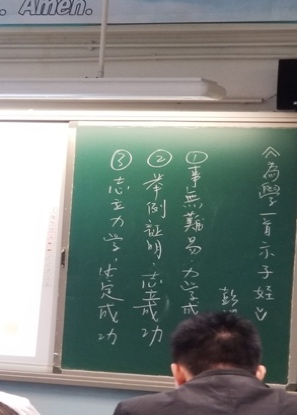 Amen.
《為學一首示子姪》
彭
①事無難易,力學成
②舉例證明,志者成功
③志立力學,必定成功